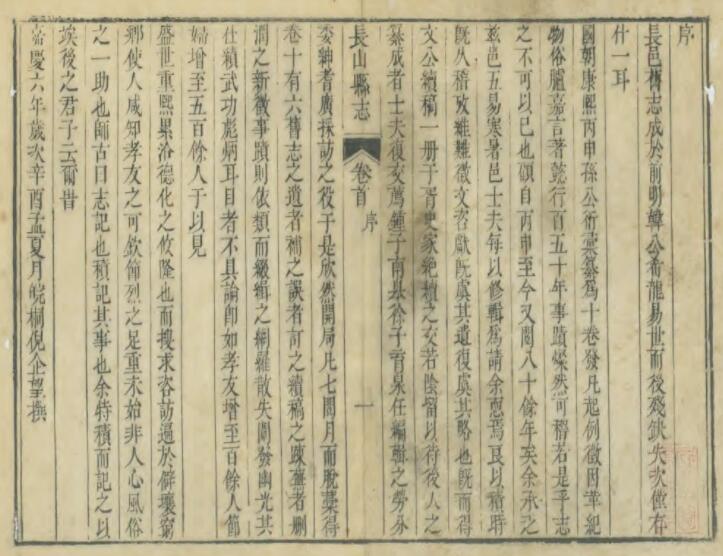 序
長邑舊志成於前明韓公希龍易世而後殘缺失次僅存
什一耳
國朝康熙丙申孫公衍彙纂為十卷發凡起例徵因革紀
物俗臚嘉言著懿行百五十年事蹟燦然可稽若是乎志
之不可以已也顧自丙申至今又閱八十餘年矣余承乏
茲邑五易寒暑邑士夫每以修輯為請余恧焉艮以積時
既久稽攷維難徵文咨獻既虞其遺復虞其略也既而得
文公續稿一冊于胥史家絕續之交若陰留以待後人之
纂成者士夫復交薦鍾子南县徐子 果任編輯之勞分
長山縣志
卷首
序
一
委紳耆廣採訪之役于是欣然開局凡七閱月而脫藁得
卷十有六舊志之遺者補之誤者訂之續稿之踈蕪者刪
潤之新徵事蹟則依類而綴緝之網羅散失闡發幽光其
仕績武功彪炳耳目者不具論即如孝友增至百餘人節
婦增至五百餘人于以見
盛世重熙累洽德化之攸隆也而搜求咨訪逼於僻壤窮
鄉使人咸知孝友之可欽節烈之足重未始非人心風俗
之一助也師古曰志記也積記其事也余特積而記之以
埃後之君子云爾昔
嘉慶六年歲次辛酉孟夏月皖桐倪企望撰